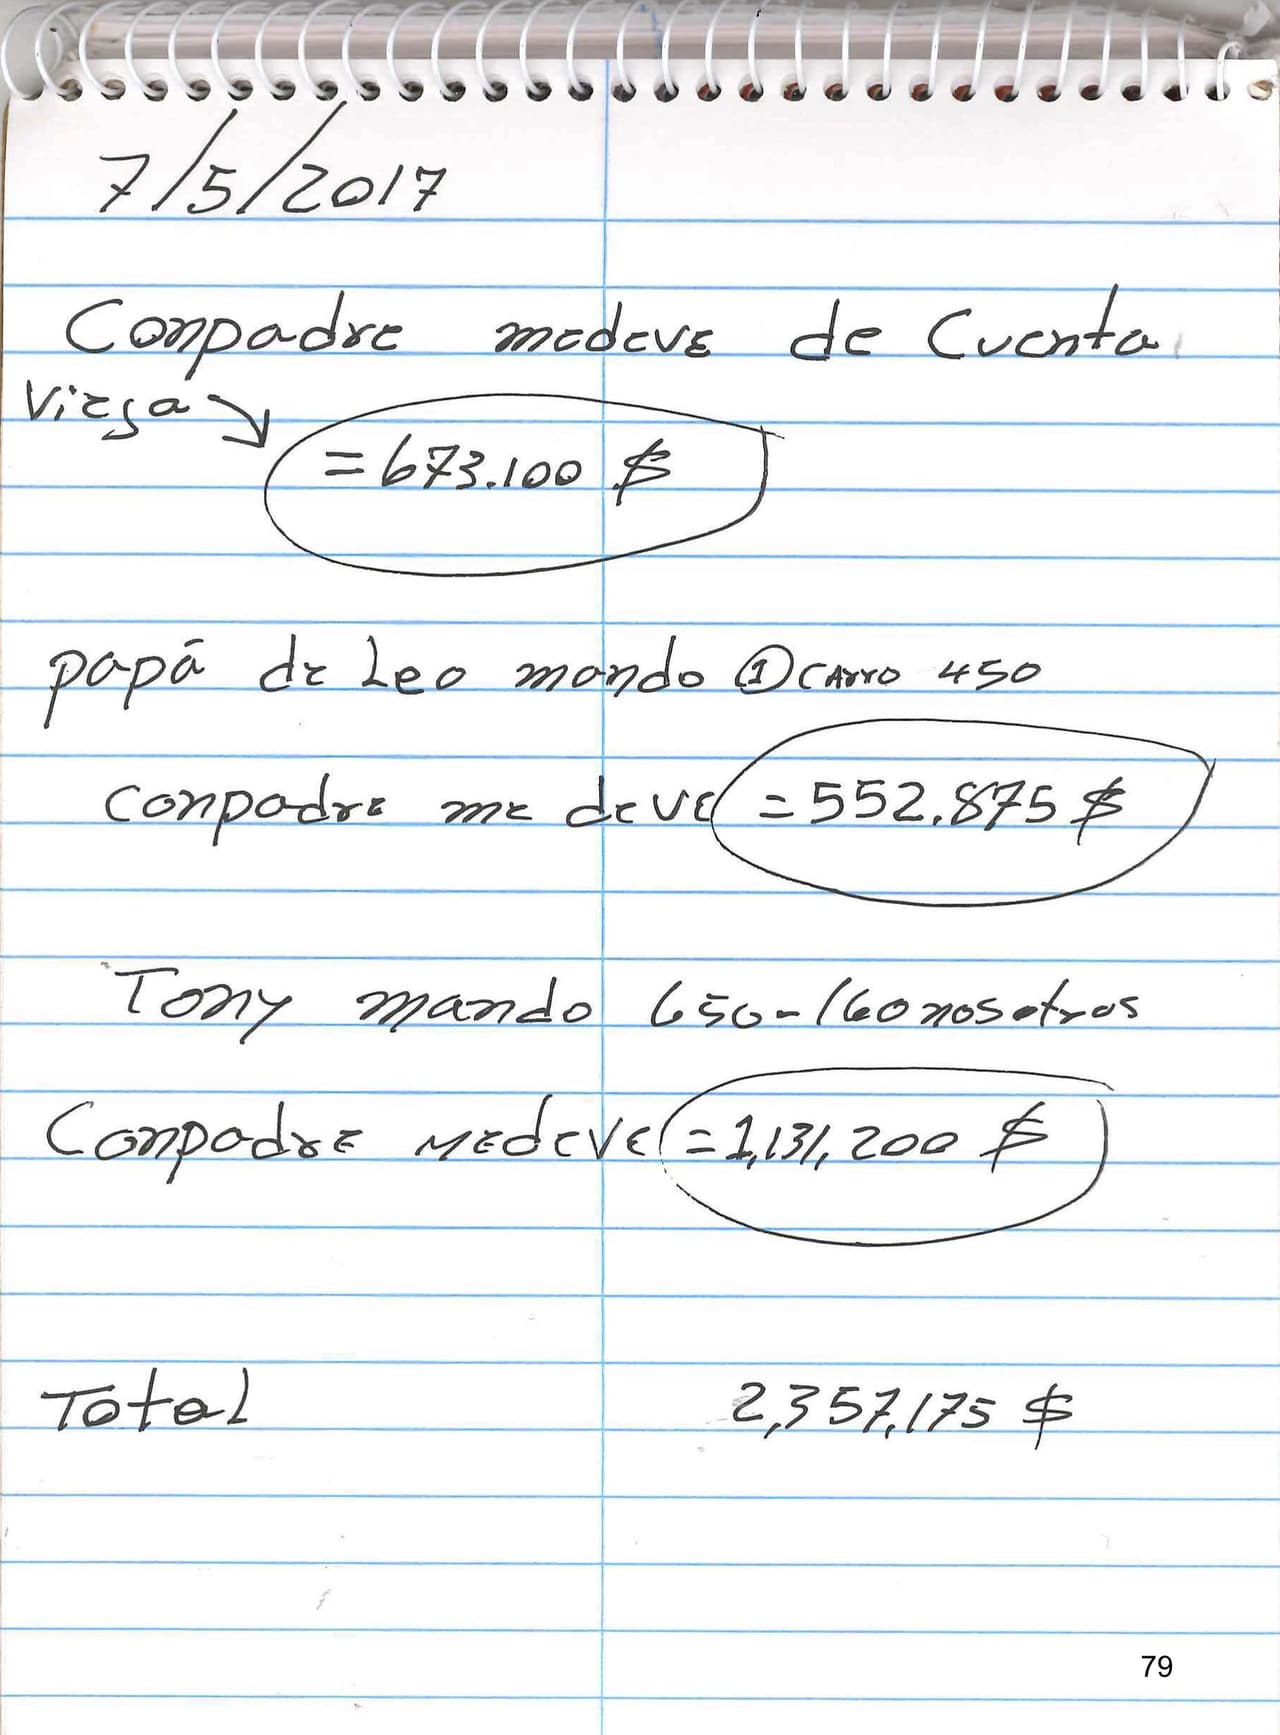 7/5/2017
Conpadre medeve de Cuenta
Viega
=673.100 $
papá de Leo mando ① carro 450
conpadre me deve =552.875 $
Tony mando 650-160 nosotros
Conpadre Medeve =1,131,200 $
Total 2,357,175 $
79